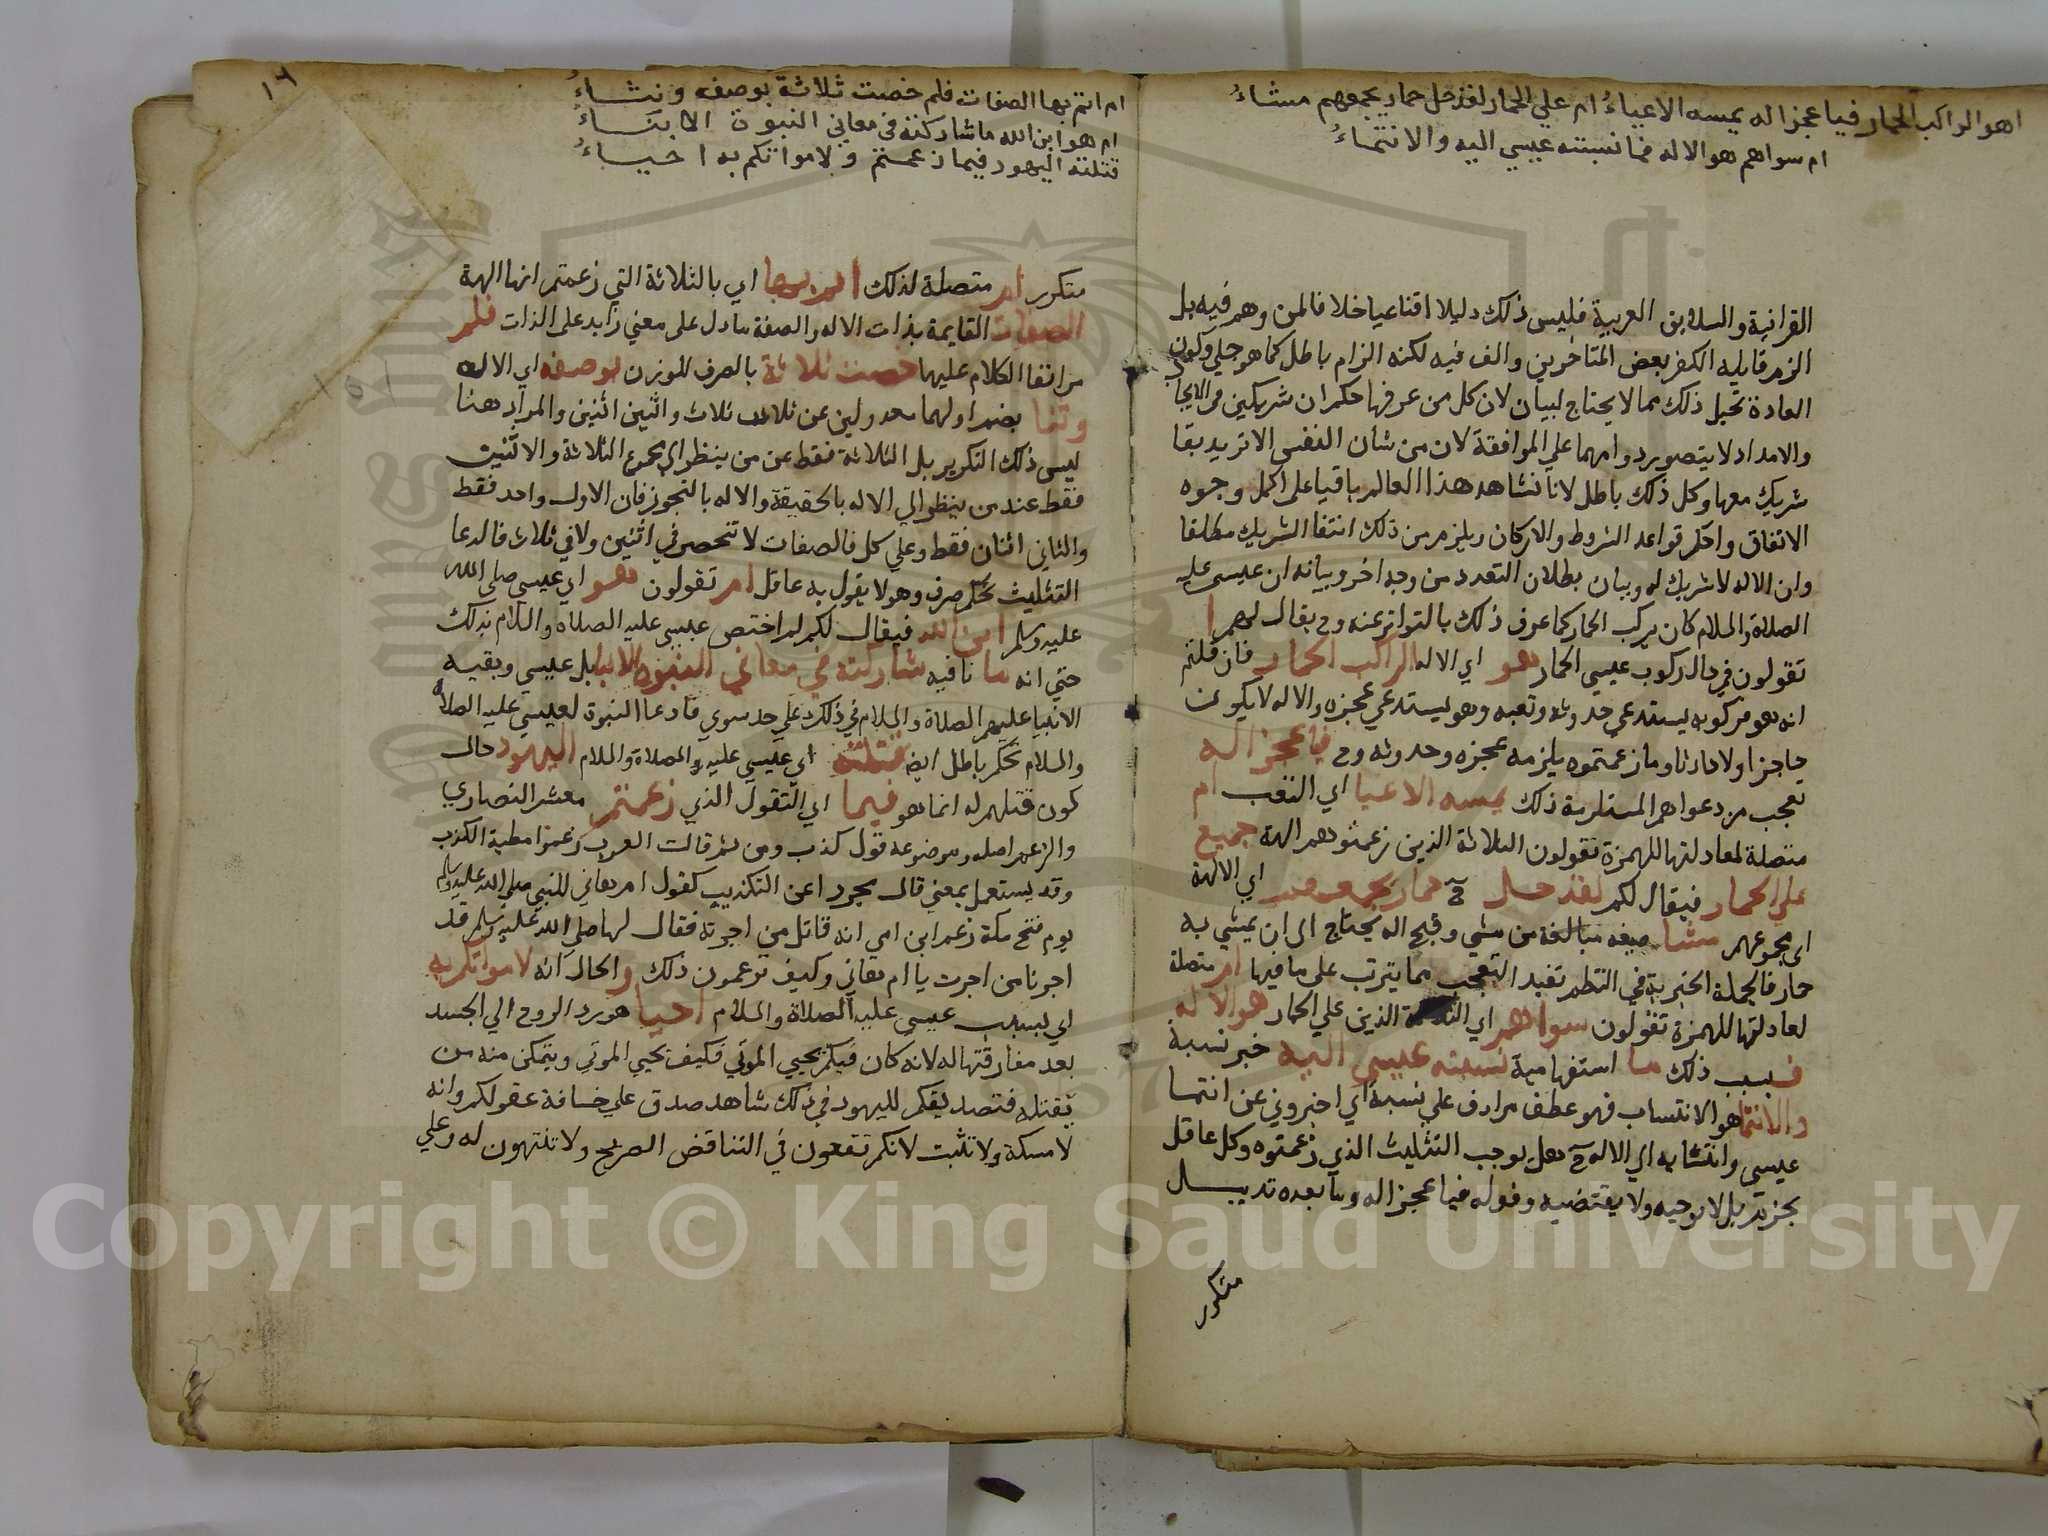 اهو الراكب الحمار فيا عجز اله يمسه الاعياءُ ام علي الحمار لقد جل حمار بجمعهم مشاءُ
ام سواهم هو الاله فما نسبته عيسي اليه والانتماءُ
القرانية والسلابق العربية فليس ذلك دليلا اقناعيا خلافا لمن وهم فيه بل
الزم قايله الكفر بعض المتاخرين والف فيه لكنه الزام باطل كما هو جلي وكون
العادة تحيل ذلك مما لا يحتاج لبيان لان كل من عرفها حكم ان شريكين في
والامداد لا يتصور دوامهما علي الموافقة لان من شان النفس الا تريد بقا
شريك معها وكل ذلك باطل لانا نشاهد هذا العالم باقيا على اكمل وجوه
الاتفاق واحكم قواعد الشروط والاركان ويلزم من ذلك انتفا الشريك مطلقا
وان الاله لا شريك له وبيان بطلان التعدد من وجه اخر وبيانه ان عيسى عليه
الصلاة والسلام كان يركب الحمار كما عرف ذلك بالتواتر عنه وح يقال لهم ا
تقولون في حال ركوب عيسي الحمار هو اي الاله الراكب الحمار فان قلتم
انه هو مركوبه يستدعي حدوثه وتعبه وهو يستدعي عجزه والاله لا يكون
عاجزا ولا حادثا وما زعمتموه يلزمه عجزه وحدوثه وح فيا عجز اله
تعجب من دعواهم المستلزمة ذلك يمسه الاعيا اي التعب ام
متصلة لمعادلتها للهمزة تقولون الثلاثة الذين زعمتوهم الهة جميع
علي الحمار فيقال لكم لقد جل ح حمار بجمعهم اي الالهة
اي مجموعهم مشا صيغه مبالغة من مشي وقبح اله يحتاج الى ان يمشي به
حمار فالجملة الخبرية في النظم تفيد التعجب مما يترتب على ما فيها ام متصلة
لمعادلتها للهمزة تقولون سواهم اي الثلاثة الذين علي الحمار هو الاله
فبسبب ذلك ما استفهامية نسبته عيسي اليه خبر نسبة
والانتما هو الانتساب فهو عطف مرادف علي نسبة اي اخبروني عن انتما
عيسى وانتسابه الي الاله ح هل يوجب التثليث الذي زعمتوه وكل عاقل
يجزم بل لا يوجبه ولا يقتضيه وقوله فيا عجز اله وما بعده تذييل
متكرر
١٦
ام انتم بها الصفات فلم خصت ثلاثة بوصفه وثناءُ
ام هو ابن الله ما شاركته في معاني النبوة الانبياءُ
قتلته اليهود فيما زعمتم ولامواتكم به احياءُ
متكرر ام متصلة لذلك اي بالثلاثة التي زعمتم انها الهة
الصفات القايمة بذات الاله والصفة ما دل على معني زايد على الذات فلم
مر انفا الكلام عليها خصت ثلاثة بالصرف للوزن بوصفه اي الاله
وثنا بضم اولهما معدولين عن ثلاث ثلاث واثنين اثنين والمراد هنا
ليس ذلك التكرير بل الثلاثة فقط عن من ينظر الي مجموع الثلاثة والاثنين
فقط عند من ينظر الي الاله بالحقيقة والاله بالتجوز فان الاول واحد فقط
والثاني اثنان فقط وعلي كل فالصفات لا تنحصر في اثنين ولا في ثلاث فالدعا
التثليث تحكم صرف وهو لا يقول به عاقل ام تقولون هو اي عيسى صلى الله
عليه وسلم ابن الله فيقال لكم لم اختص عيسي عليه الصلاه والسلام بذلك
حتي انه ما نافيه شاركته في معاني النبوه الانبيا بل عيسي وبقيه
الانبيا عليهم الصلاة والسلام في ذلك على حد سوي فادعا البنوة لعيسي عليه الصلاه
والسلام تحكم باطل ايضا قتلته اي عيسي عليه والصلاة والسلام اليهود حال
كون قتلهم له انما هو فيما اي التقول الذي زعمتم معشر النصاري
والزعم اصله وموضوعه قول كذب ومن ثم قالت العرب زعموا مطية الكذب
وقد يستعمل بمعني قال مجردا عن التكذيب كقول ام هاني للنبي صلى الله عليه وسلم
يوم فتح مكة زعم ابن امي انه قاتل من اجرته فقال لها صلى الله عليه وسلم قد
اجرنا من اجرت يا ام هاني وكيف تزعمون ذلك والحال انه لامواتكم به
اي بسبب عيسى عليه الصلاة والسلام احيا هو رد الروح الي الجسد
بعد مفارقتها له لانه كان فيكم يحيي الموتي فكيف يحيي الموتي ويتمكن منه من
يقتله فتصديقكم لليهود في ذلك شاهد صدق علي خسافة عقولكم وانه
لا مسكة ولا تثبت لانكم تقعون في التناقض الصريح ولا تنتهون له وعلي
Copyright © King Saud University